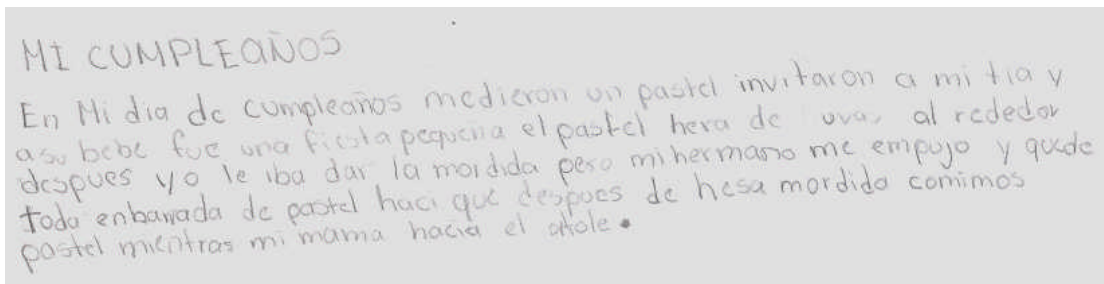 MI CUMPLEAÑOS
En Mi dia de cumpleaños medieron un pastel invitaron a mi tia y
asu bebe fue una fiesta pequeña el pastel hera de uvas al rededor
despues yo le iba dar la mordida pero mi hermano me empujo y quede
toda enbarrada de pastel haci que despues de hesa mordida comimos
pastel mientras mi mama hacia el atole.